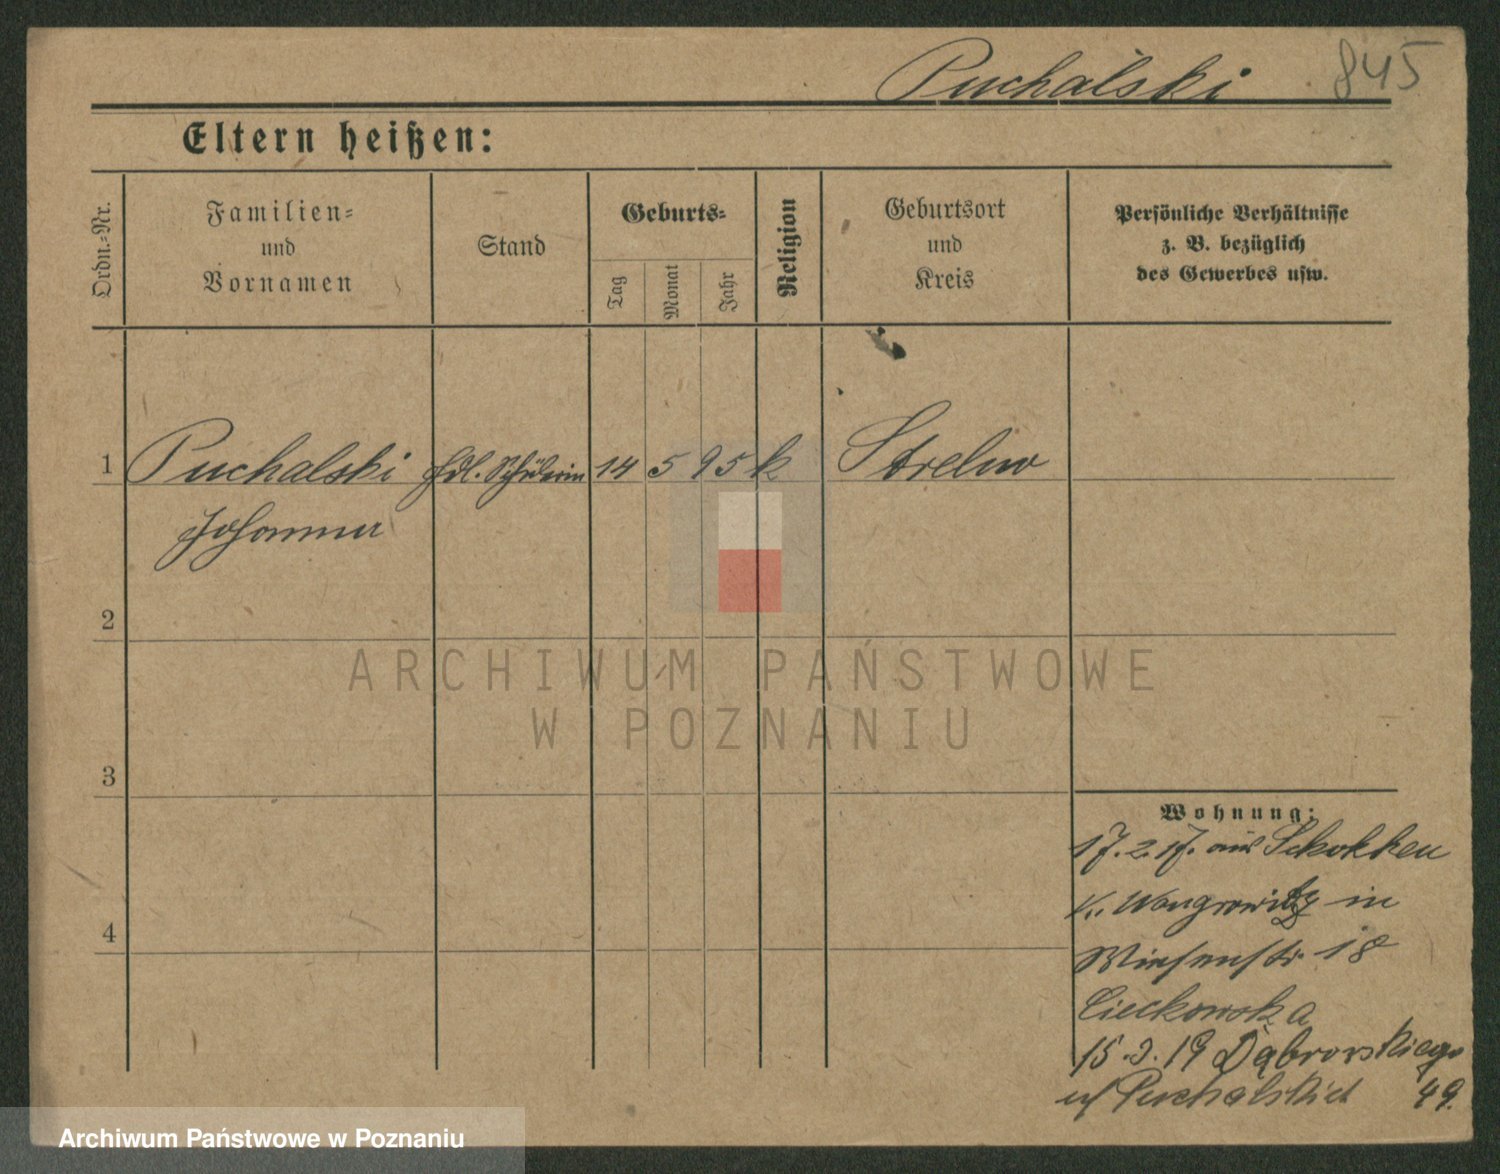 Puchalski 845
Eltern heißen:
Ordn.-Nr.
Familien-
und
Vornamen
Stand
Geburts-
Tag
Monat
Jahr
Religion
Geburtsort
und
Kreis
Persönliche Verhältnisse
z. B. bezüglich
des Gewerbes usw.
1 Puchalski Schülerin 14 5 95 k Strelno
Johanna
2
3
4
Wohnung:
17. 2. 17. aus Schokken
Kr. Wongrowitz in
Wiesenstr. 18
Cieckowska
15. 3. 19 Dąbrowskiego
Puchalskich 49.
ARCHIWUM PAŃSTWOWE
W POZNANIU
Archiwum Państwowe w Poznaniu